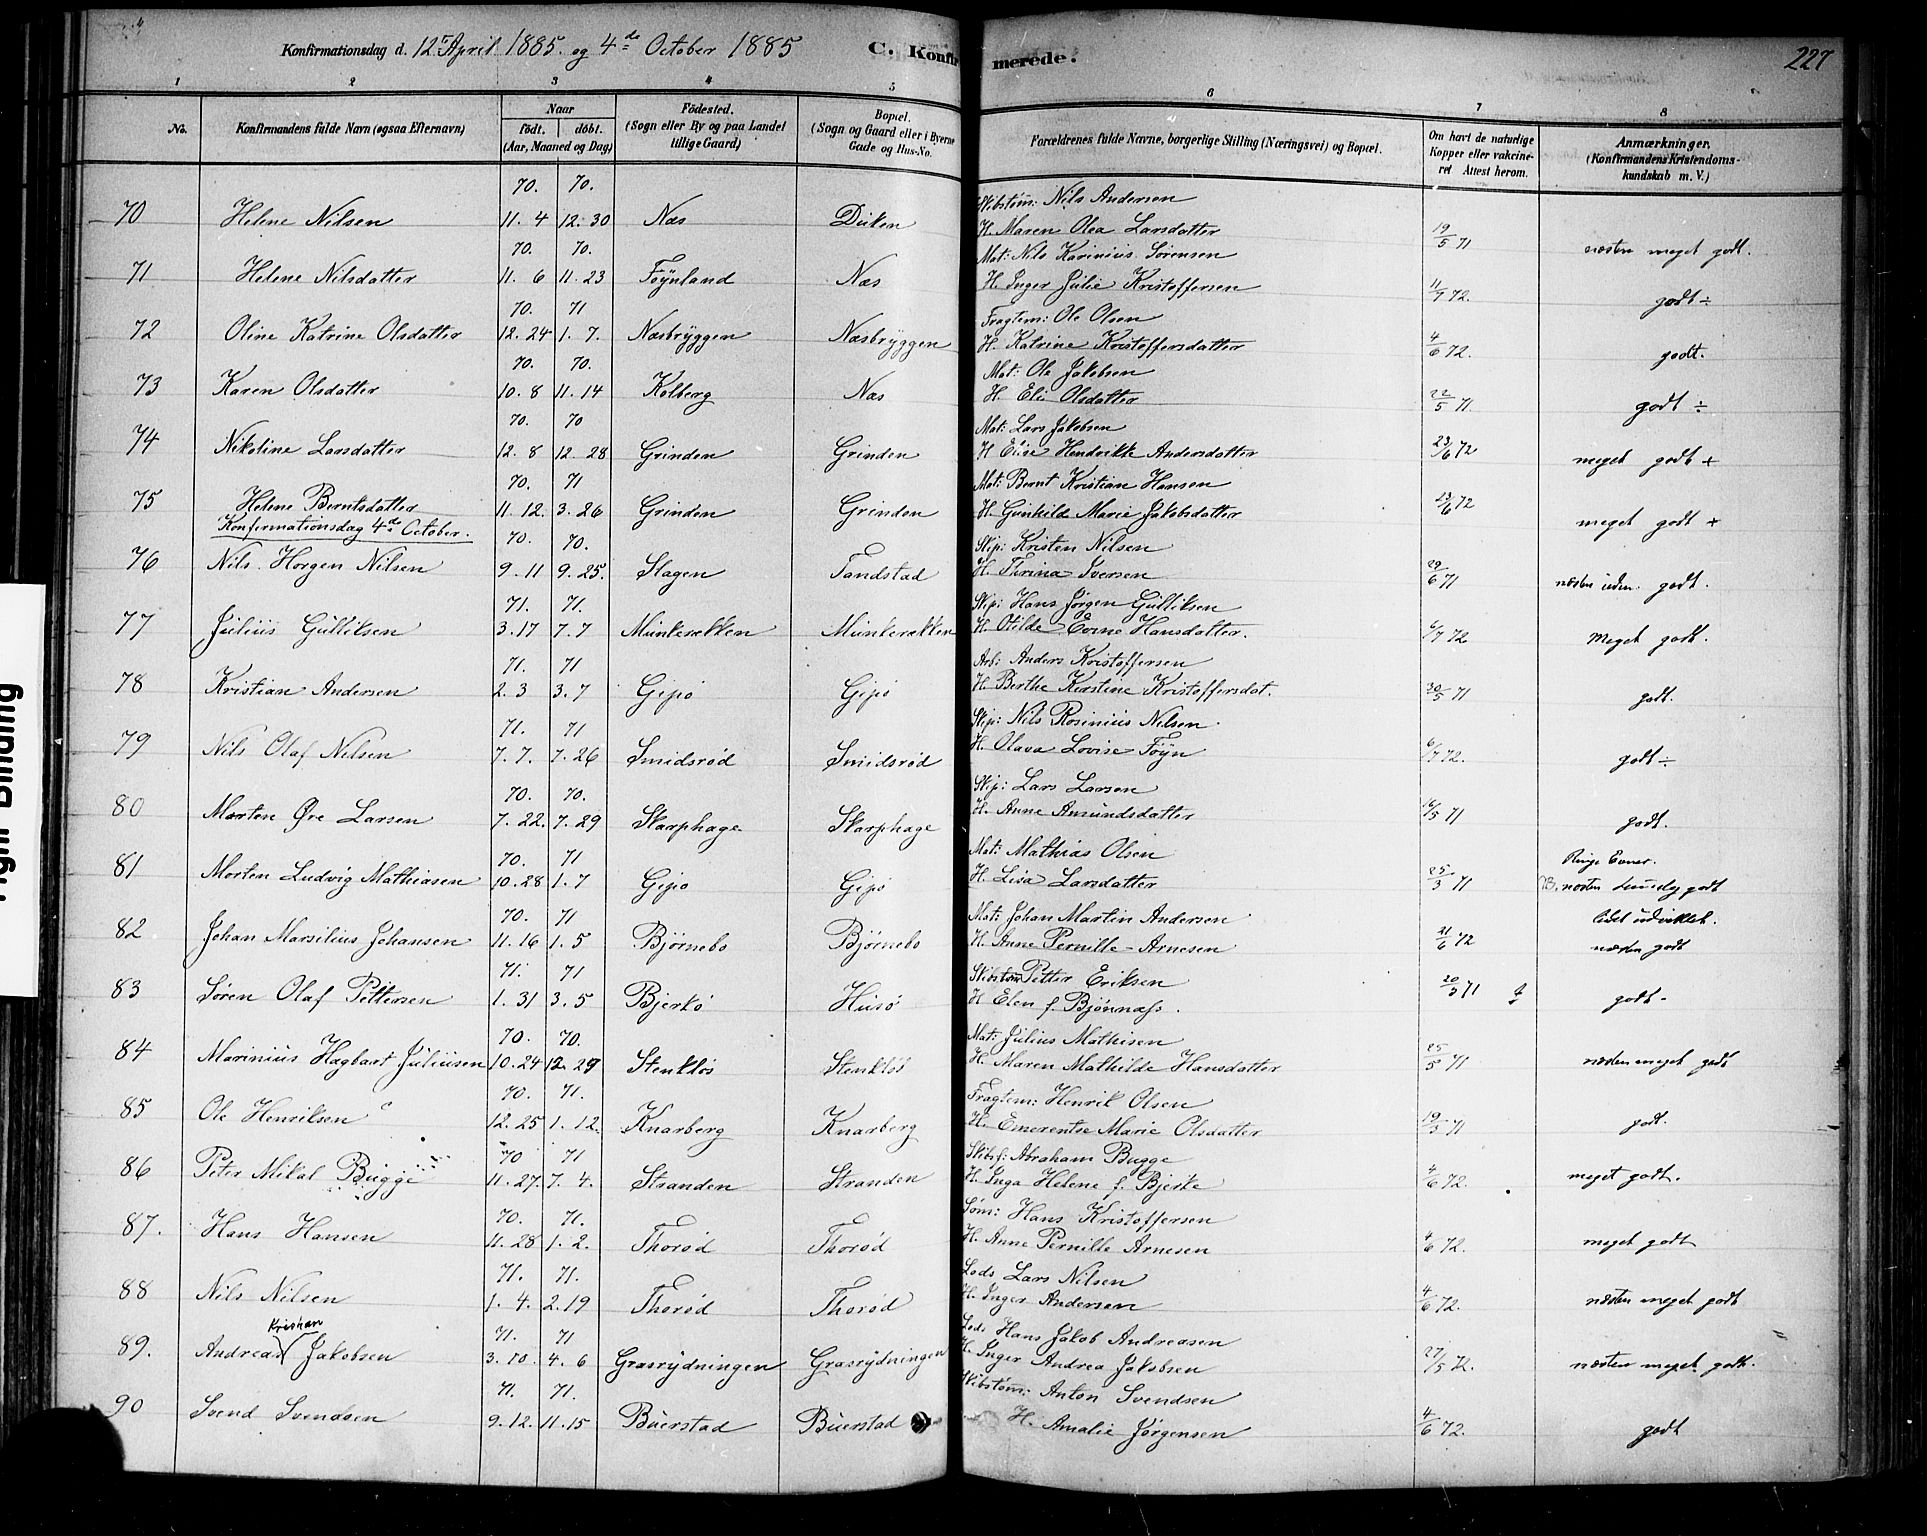 Konfirmationsdag d. 12te April 1885. og 4de October 1885 C. Konfirmerede. 227
1 2 3 4 5 6 7 8
No. Konfirmandens fulde Navn (ogsaa Efternavn) Naar født. døbt. (Aar, Maaned og Dag) Fødested. (Sogn eller By og paa Landet tillige Gaard) Bopæl. (Sogn og Gaard eller i Byerne Gade og Hus-No. Forældrenes fulde Navne, borgerlige Stilling (Næringsvei) og Bopæl. Om havt de naturlige Kopper eller vakcineret Attest herom. Anmærkninger. (Konfirmandens Kristendomskundskab m. V.)
70. 70. Skibstøm: Nils Andersen
70 Helene Nilsen 11. 4 12. 30 Næs Duken H. Maren Olea Larsdatter 19/5 71 næsten meget godt.
70. 70. Mat: Nils Karinius Sørensen
71 Helene Nilsdatter 11. 6 11. 23 Føynland Næs H. Inger Julie Kristoffersen 11/7 72. godt ÷
70. 71 Fragtem: Ole Olsen
72 Oline Katrine Olsdatter 12. 24 1. 7. Næsbryggen Næsbryggen H. Katrine Kristoffersdatter 4/6 72. godt.
70. 70. Mat: Ole Jakobsen
73 Karen Olsdatter 10. 8 11. 14 Kolberg Næs H. Eli Olsdatter 22/5 71. godt ÷
70. 70 Mat: Lars Jakobsen
74 Nikoline Larsdatter 12. 8 12. 28 Grinden Grinden H Elise Hendrikke Andersdatter 23/6 72 meget godt +
70. 71 Mat: Bernt Kristian Hansen
75 Helene Berntsdatter 11. 12. 3. 26 Grinden Grinden H. Gunhilde Marie Jakobsdatter 23/6 72 meget godt +
Konfirmationsdag 4de October.
70. 70. Skip: Kristen Nilsen
76 Nils Horgen Nilsen 9. 11 9. 25. Slagen Tandstad H. Thrina Iversen 29/6 71 næsten uden. godt.
71. 71. Skip: Hans Jørgen Gulliksen
77 Julius Gulliksen 3. 17 7. 7 Munkerækken Munkerækken H. Otilde Evine Hansdatter. 6/7 72 Meget godt.
71. 71 Arb: Anders Kristoffersen
78 Kristian Andersen 2. 3 3. 7 Gipø Gipø H. Berthe Kirstine Kristoffersdat. 30/5 71 godt.
71. 71 Skip: Nils Rosinius Nilsen.
79 Nils Olaf Nilsen 7. 7. 7. 26 Smidsrød Smidsrød H. Olava Lovise Føyn 6/7 72. godt ÷
70. 70. Skip: Lars Larsen
80 Morten Øre Larsen 7. 22. 7. 29 Skarphage Skarphage H. Anne Amundsdatter 16/5 71 godt.
70. 71 Mat: Mathias Olsen Ringe Evner.
81 Morten Ludvig Mathiasen 10. 28 1. 7 Gipø Gipø H. Lisa Larsdatter 25/3 71 næsten godt
70. 71 Mat: Johan Martin Andersen lidet udviklet.
82 Johan Marsilius Johansen 11. 16 1. 5 Bjørnebo Bjørnebo H. Anne Pernille Arnesen 21/6 72 næsten godt
71. 71 Skibstøm Petter Eriksen
83 Søren Olaf Pettersen 1. 31 3. 5 Bjerkø Husø H Elen f. Bjønnæss. 20/3 71 godt.
70. 70. Mat: Julius Mathisen
84 Marinius Hagbart Juliusen 10. 24 12. 29 Stenkløs Stenkløs H. Maren Mathilde Hansdatter 25/5 71 næsten meget godt
70. 71. Fragtem: Henrik Olsen
85 Ole Henriksen 12. 25 1. 12. Knarberg Knarberg H. Emerentse Marie Olsdatter 19/5 71 godt.
70 71 Skibsf: Abraham Bugge
86 Peter Mikal Bugge 11. 27. 7. 4. Stranden Stranden H. Inga Helene f. Bjerke 4/6 72. meget godt.
70. 71. Søm: Hans Kristoffersen
87. Hans Hansen 11. 28 1. 2. Thorød Thorød H. Anne Pernille Arnesen 4/6 72. meget godt
71. 71. Lods Lars Nilsen
88 Nils Nilsen 1. 4. 2. 19 Thorød Thorød H. Inger Andersen 4/6 72. næsten meget godt
Kristian 71. 71 Lods Hans Jakob Andreasen
89. Andreas Jakobsen 3. 10. 4. 6 Græsrydningen Græsrydningen H. Inger Andrea Jakobsen 27/5 72. næsten meget godt.
71. 71. Skibstøm: Anton Svendsen
90 Svend Svendsen 9. 12. 11. 15 Buerstad Buerstad H. Amalie Jørgensen 4/6 72. godt